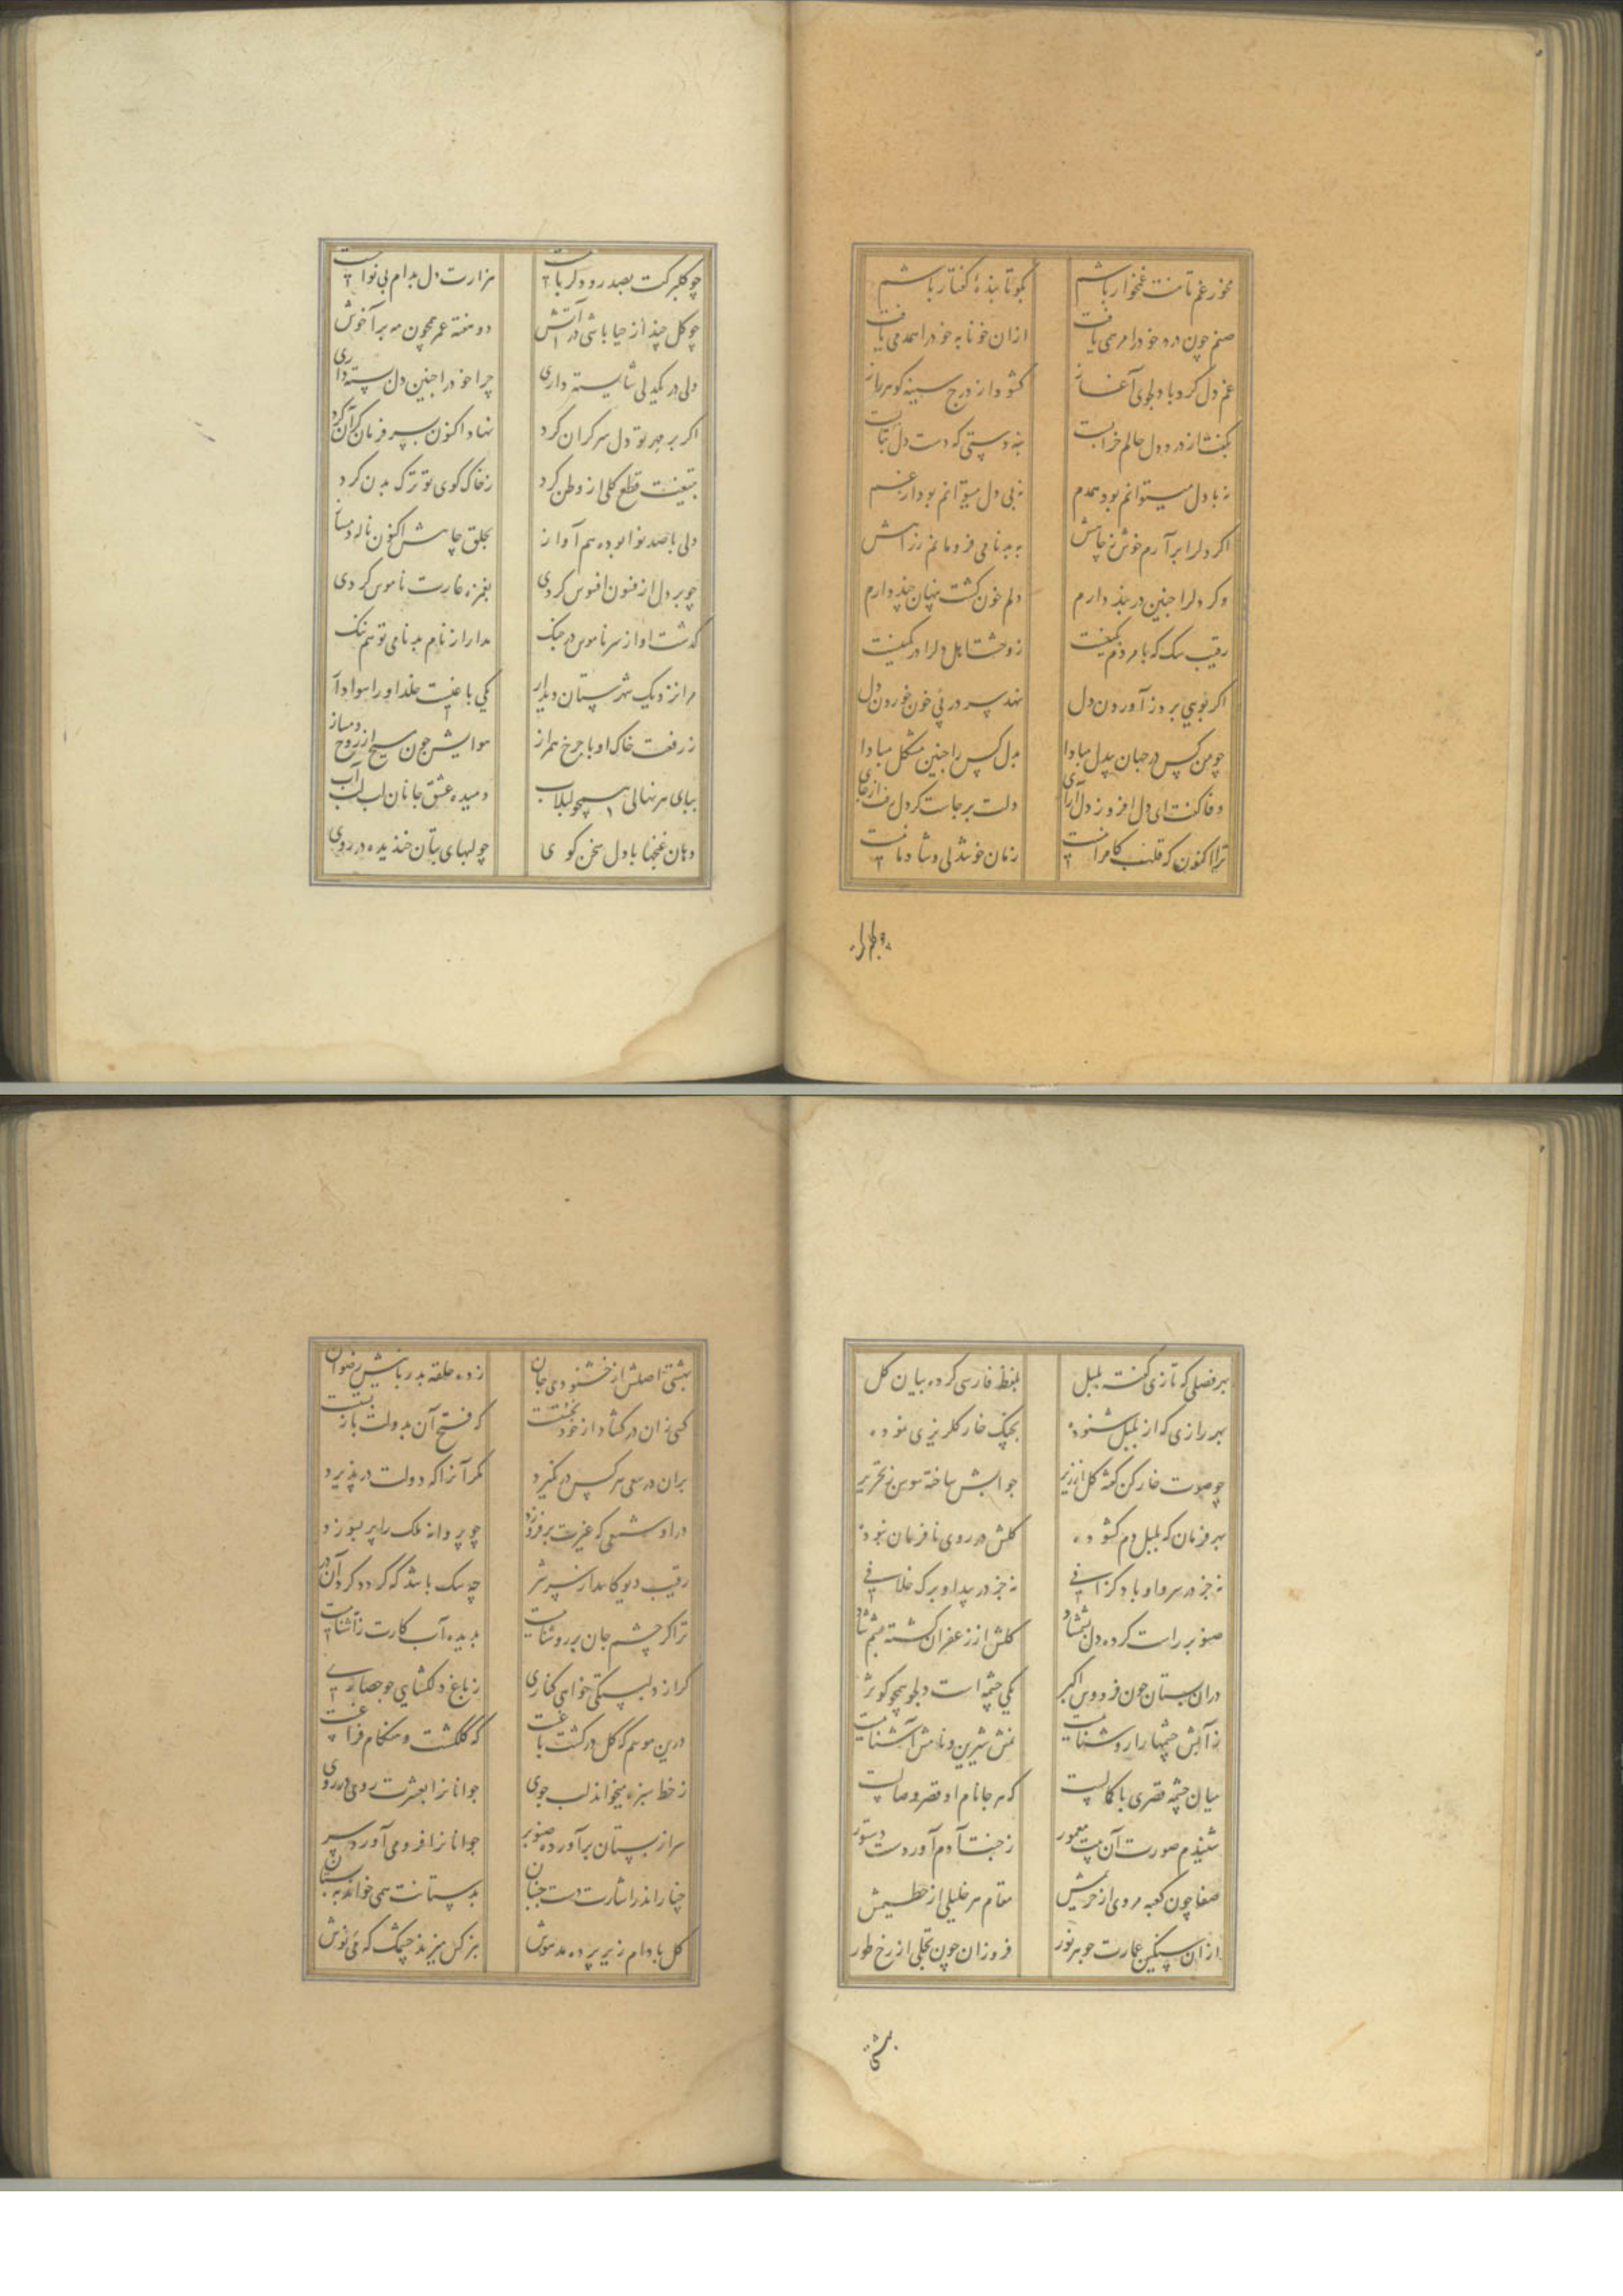 مخور غم تا منت غمخوار باشم بکو تا بنده کفتار باشم
صنم چون درد خود را مرهمی یافت ازان خونابه خود را همدمی یافت
غم دل کرد با دلجوی آغاز کشود از درج سینه کوهر راز
بکفتا از درد دل حالم خرابست نه دستی که دست دل بتابست
نه با دل میتوانم بود همدم نه بی دل میتوانم بود از غم
اکر دلرا برآرم خوش ز جاهش به بدنامی فرو مانم ز راهش
وکر دلرا چنین در بند دارم دلم خون کشت پنهان چند دارم
رقیب سک که با مردم بکینست ز وحشت اهل دلرا در کمینست
اکر بویی برد ز آوردن دل نهد سر در پی خون خوردن دل
چو من کس در جهان بیدل مبادا بدل کس را چنین مشکل مبادا
وفا کفت ای دل افروز دل آرای دلت برجاست کر دل رفت از جای
ترا اکنون که قلب کامرانست زمان خوشدلی و شادمانست
دلم را
چو کلبرکت بصد رو دلرباست هزارت دل بدام بی نواست
چو کل چند از حیا باشی در آتش دو هفته عمر همچون مه برآ خوش
دلی در یکدلی شایسته داری چرا خود را چنین دل بسته داری
اکر بر مهر تو دل سر کران کرد نهاد اکنون سر فرمان کران کرد
بتیغت قطع کلی از وطن کرد ز خاک کوی تو ترک بدن کرد
دلی با صد نوا بوده هم آواز بحلق چاهش اکنون ناله دمساز
چو بر دل از فنون افسوس کردی بغمزه غارت ناموس کردی
کذشت او از سر ناموس در جنک مدار از نام بدنامی تو هم ننک
مرا نزدیک شهرستان دیدار یکی باغیست خلد او را هوادار
ز رفعت خاک او با چرخ همراز هوایش چون مسیح از روح دمساز
بپای هر نهالی همچو لبلاب دمیده عشق جانان لب لب آب
دهان غنچها با دل سخن کوی چو لبهای بتان خندیده در روی
بهر فصلی که تازی کفته بلبل بلفظ فارسی کرده بیان کل
بهر رازی که از بلبل شنوده بچنک خار کلریزی نموده
چو صوت خارکن کفته کل از زیر جوابش ساخته سوسن ز تحریر
بهر فرمان که بلبل دم کشوده کلش در روی نافرمان نبوده
نه جز در سرو او باد کزافی نه جز در بید او برک خلافی
صنوبر راست کرده دل بشمشاد کلش از زعفران کشته چشم شاد
دران بستان چون فردوس اکبر یکی چشمه است دلجو همچو کوثر
ز آبش چشمها را روشنایست نمش شیرین و نامش آشنایست
میان چشمه قصری با کمالست که هر جا نام او قصر وصالست
شنیدم صورت آن بیت معمور ز جنت آدم آوردست دستور
صفا چون کعبه مروی از حریمش مقام هر خلیلی از حطیمش
ازان سنکین عمارت جوهر نور فروزان چون تجلی از رخ طور
بهشتی
بهشتی اصلش از خشنودی جان زده حلقه بدربانیش رضوان
کسی زان در کشاد از خود نجستست که فتح آن بدولت باز بستست
بران در سعی هر کس در نکیرد مکر آنرا که دولت در پذیرد
در او شمعی که غیرت برفروزد چو پروانه ملک را پر بسوزد
رقیب دیو کامد از سر شر چه سک باشد که کردد کرد آن در
ترا کر چشم جان بر روشنایست بدیده آب کارت ز آشنایست
کر از دلبستکی خواهی کناری ز باغ دلکشایی جو حصاری
درین موسم که کل در کشت باغست که کلکشت و هنکام فراغست
ز خط سبزه میخواند لب جوی جوانانرا بعشرت روی در روی
سر از بستان برآورده صنوبر جوانانرا فرو می آورد سر
چنار اندر اشارت دست جنبان بدستانت همی خواند به بستان
کل بادام زیر پرده مدهوش بنر کس میزند چشمک که می نوش